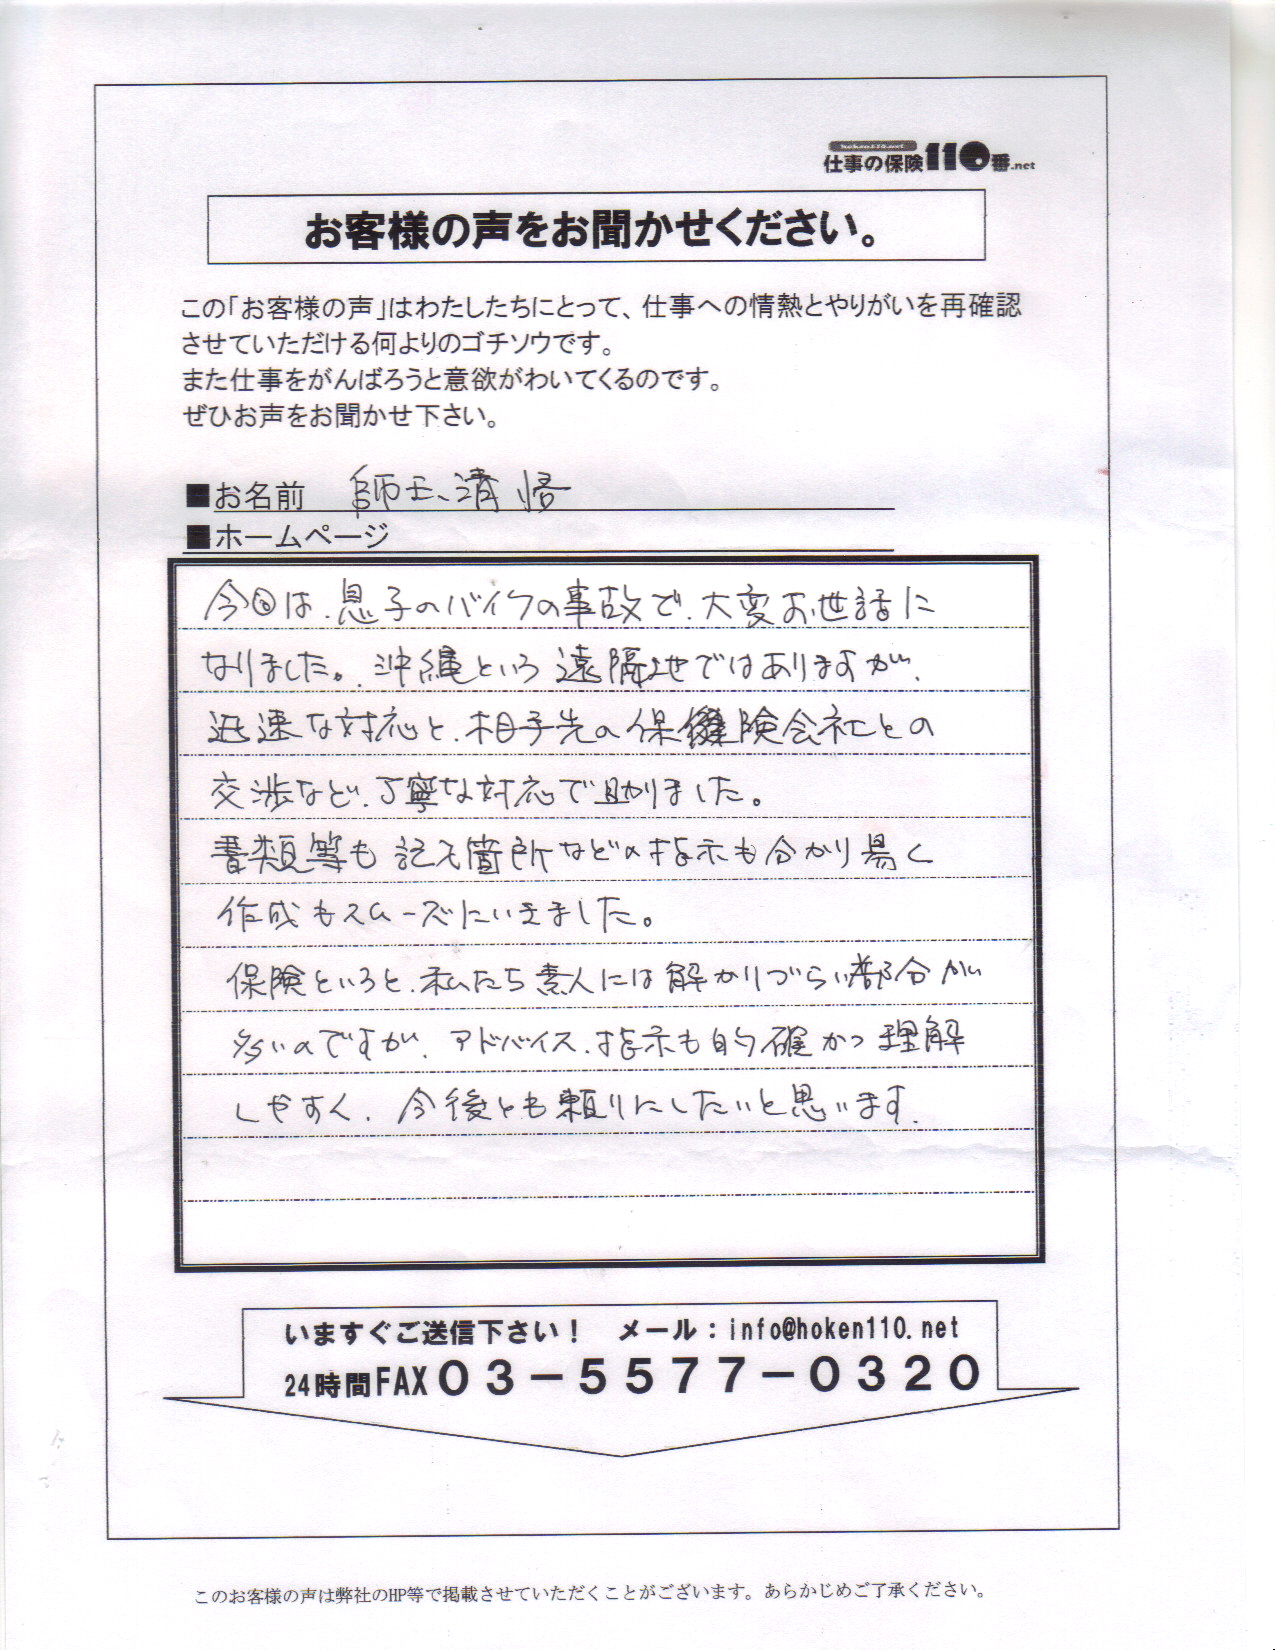 仕事の保険110番.net
お客様の声をお聞かせください。
この「お客様の声」はわたしたちにとって、仕事への情熱とやりがいを再確認
させていただける何よりのゴチソウです。
また仕事をがんばろうと意欲がわいてくるのです。
ぜひお声をお聞かせ下さい。
■お名前 師玉清悟
■ホームページ
今回は、息子のバイクの事故で、大変お世話に
なりました。沖縄という遠隔地ではありますが、
迅速な対応と、相手先の保険会社との
交渉など、丁寧な対応で助かりました。
書類等も記入箇所などの指示も分かり易く
作成もスムーズにいきました。
保険というと、私たち素人には解かりづらい部分が
多いのですが、アドバイス、指示も的確かつ理解
しやすく、今後とも頼りにしたいと思います。
いますぐご送信下さい！ メール：info@hoken110.net
24時間FAX０３－５５７７－０３２０
このお客様の声は弊社のHP等で掲載させていただくことがございます。あらかじめご了承ください。